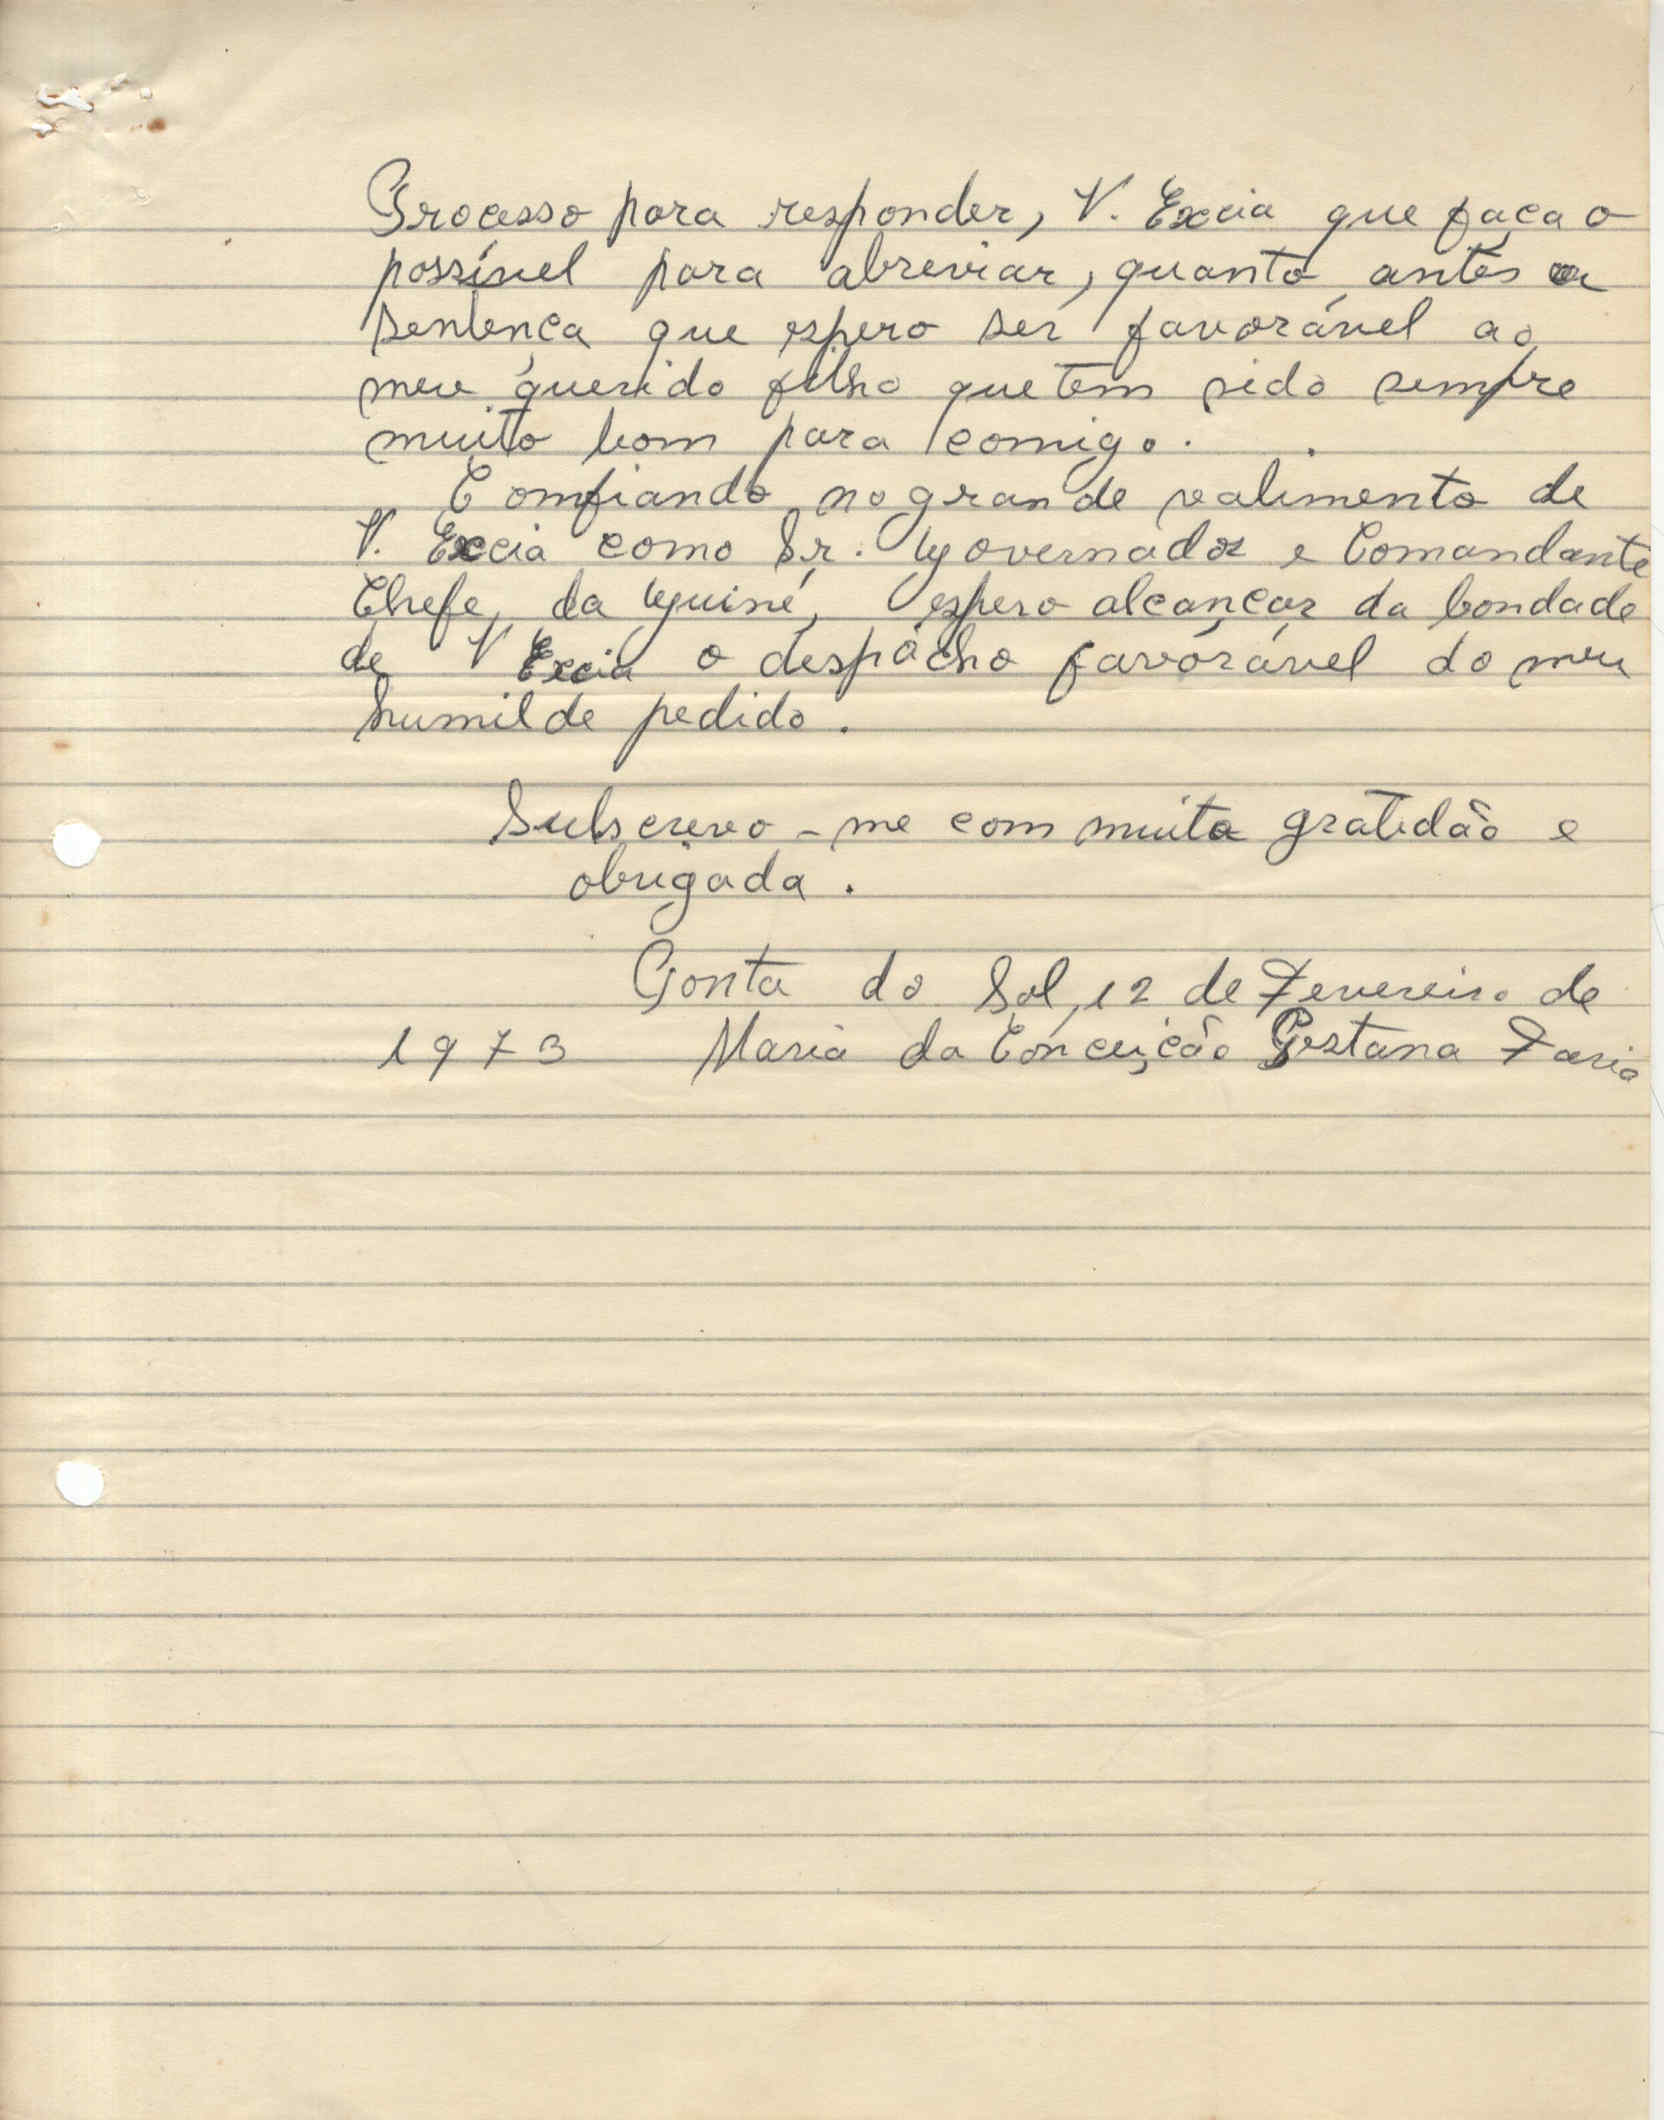 Processo para responder, V. Excia que faça o
possível para abreviar, quanto antes a
sentença que espero ser favorável ao
meu querido filho que tem sido sempre
muito bom para comigo.
Comfiando no grande valimento de
V. Excia como Sr. Governador e Comandante
Chefe, da Guiné, espero alcançar da bondade
de V Excia o despacho favorável do meu
humilde pedido.
Subscrevo-me com muita gratidão e
obrigada.
Ponta do Sol, 12 de Fevereiro de
1973 Maria da Conceição Pestana Faria